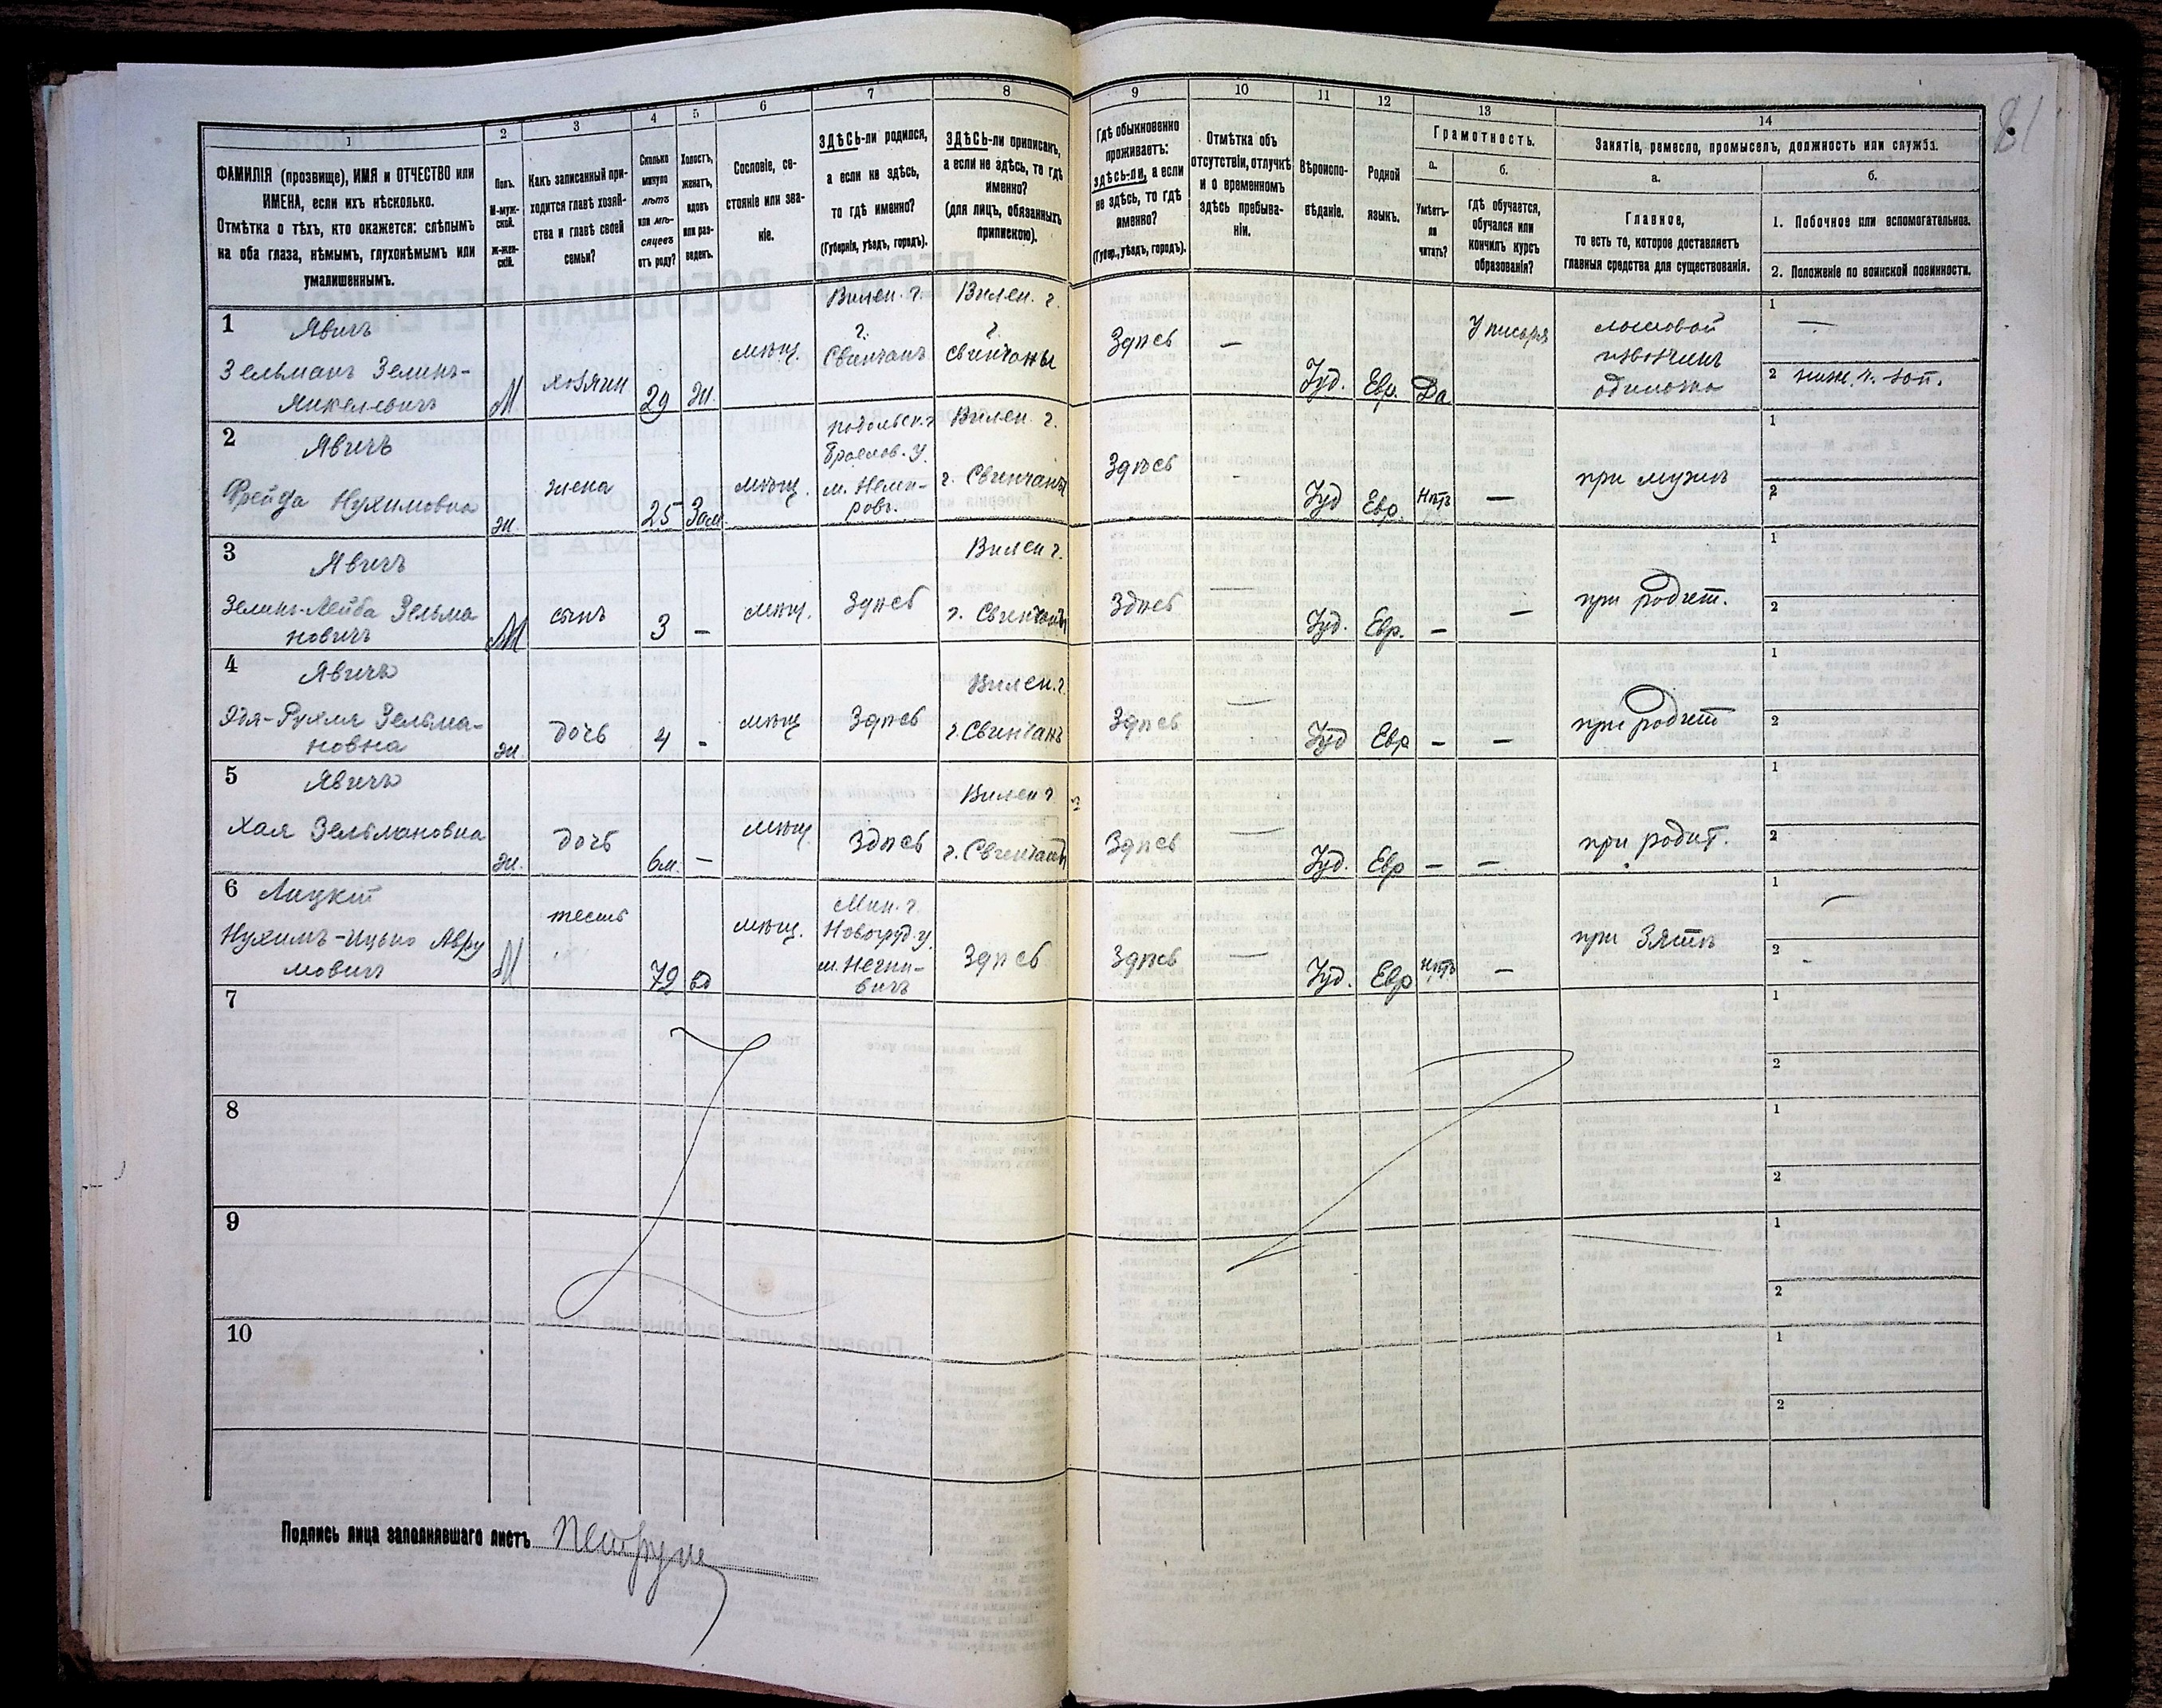 81
1
2
3
4
5
6
7
8
9
10
11
12
13
14
ФАМИЛІЯ (прозвище), ИМЯ и ОТЧЕСТВО или
ИМЕНА, если ихъ нѣсколько.
Отмѣтка о тѣхъ, кто окажется: слѣпымъ
на оба глаза, нѣмымъ, глухонѣмымъ или
умалишеннымъ.
Полъ.
М-муж-
ской.
Ж-жен-
скій.
Какъ записанный при-
ходится главѣ хозяй-
ства и главѣ своей
семьи?
Сколько
минуло
лѣтъ
или мѣ-
сяцевъ
отъ роду?
Холостъ,
женатъ,
вдовъ
или раз-
веденъ.
Сословіе, со-
стояніе или зва-
ніе.
ЗДѢСЬ-ли родился,
а если не здѣсь,
то гдѣ именно?
(Губернія, уѣздъ, городъ).
ЗДѢСЬ-ли приписанъ,
а если не здѣсь, то гдѣ
именно?
(для лицъ, обязанныхъ
припискою).
Гдѣ обыкновенно
проживаетъ:
здѣсь-ли, а если
не здѣсь, то гдѣ
именно?
(Губер., уѣздъ, городъ).
Отмѣтка объ
отсутствіи, отлучкѣ
и о временномъ
здѣсь пребыва-
ніи.
Вѣроиспо-
вѣданіе.
Родной
языкъ.
Грамотность.
а.
Умѣетъ-
ли
читать?
б.
гдѣ обучается,
обучался или
кончилъ курсъ
образованія?
Занятіе, ремесло, промыселъ, должность или служба.
а.
Главное,
то есть то, которое доставляетъ
главныя средства для существованія.
б.
1. Побочное или вспомогательное.
2. Положеніе по воинской повинности.
1
Явичъ
Зельманъ Зеликъ-
Янкелевичъ
М
хозяин
29
ж.
мѣщ.
Вилен. г.
г.
Свинчанъ
Вилен. г.
г.
Свинчаны
Здѣсь
—
Іуд.
Евр.
Да
ломовой
извозчикъ
одиночка
1
—
2
ниж. ч. зап.
2
Явичъ
Фрейда Нухимовна
ж.
жена
25
Зам
мѣщ.
Подольск. г
Брацлов. у.
м. Неми-
ровъ.
Вилен. г.
г. Свинчаны
Здѣсь
—
Іуд
Евр.
Нѣтъ
—
при мужѣ
1
2
3
Явичъ
Зеликъ-Лейба Зельма
новичъ
М
сынъ
3
—
мѣщ.
Здѣсь
Вилен г.
г. Свинчаны
Здѣсь
—
Іуд.
Евр.
—
—
при родит.
1
2
4
Явичъ
Эдя-Рухля Зельма-
новна
ж.
дочь
4
-
мѣщ
Здѣсь
Вилен. г.
г. Свинчанъ
Здѣсь
—
Іуд
Евр
—
—
при родит
1
2
5
Явичъ
Хая Зельмановна
ж.
дочь
6м.
—
мѣщ
Здѣсь
Вилен г.
г. Свинчаны
Здѣсь
—
Іуд.
Евр
—
—
при родит.
1
2
6
Лицкій
Нухимъ-Ицько Авру
мовичъ
М
тесть
72
вд
мѣщ.
Мин. г.
Новогруд. у.
Здѣсь
Здѣсь
—
Іуд.
Евр
Нѣтъ
—
при Зятѣ
1
—
2
-
7
1
2
8
1
2
9
1
2
10
1
2
Подпись лица заполнявшаго листъ